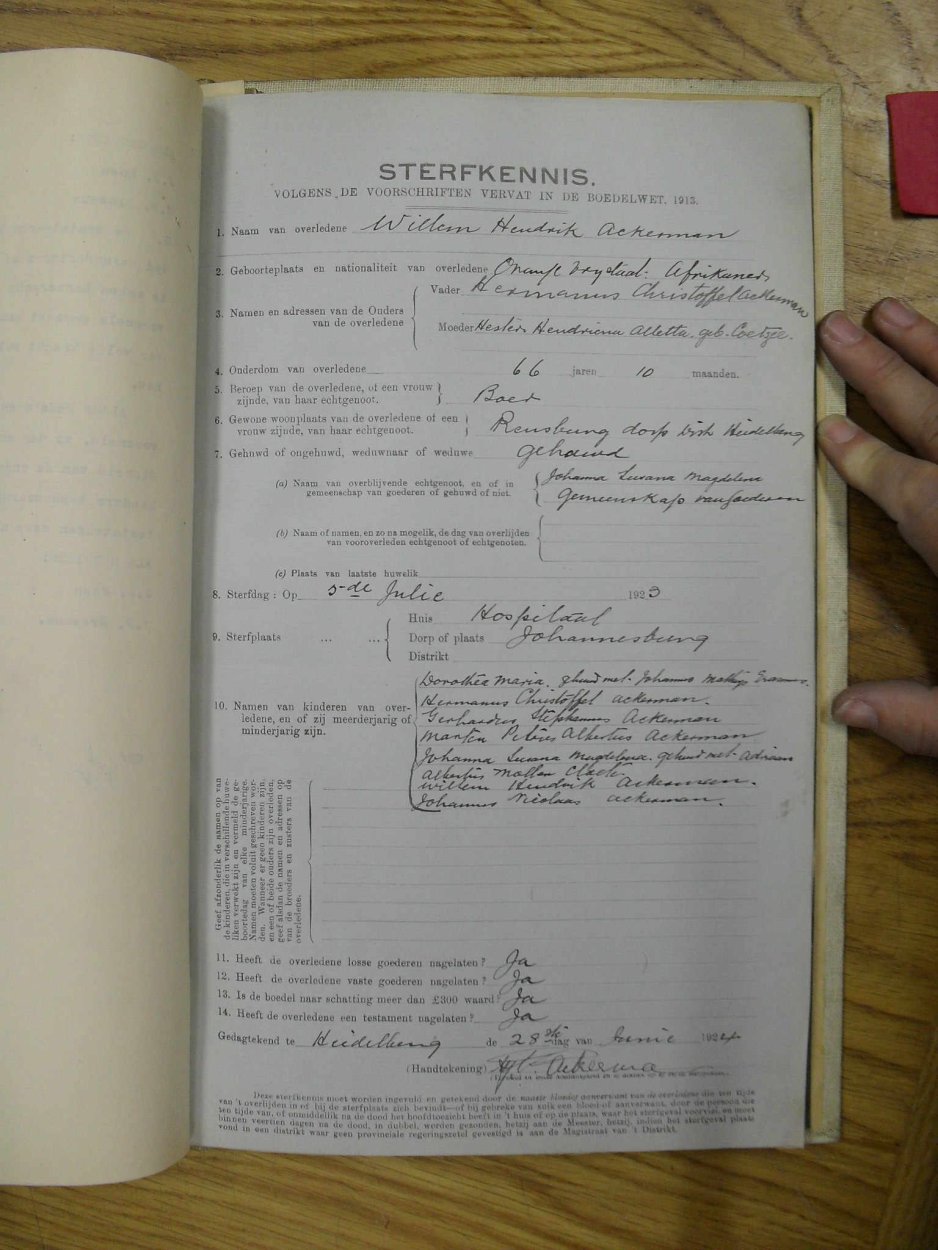 STERFKENNIS.
VOLGENS DE VOORSCHRIFTEN VERVAT IN DE BOEDELWET, 1913.
1. Naam van overledene Willem Hendrik Ackerman
2. Geboorteplaats en nationaliteit van overledene Oranje Vrystaat. Afrikaner
3. Namen en adressen van de Ouders van de overledene
Vader Hermanus Christoffel Ackerman
Moeder Hester Hendriena Alletta. geb. Coetzee.
4. Onderdom van overledene 66 jaren 10 maanden.
5. Beroep van de overledene, of een vrouw
zijnde, van haar echtgenoot. Boer
6. Gewone woonplaats van de overledene of een
vrouw zijnde, van haar echtgenoot. Rensburg dorp Distr Heidelberg
7. Gehuwd of ongehuwd, weduwnaar of weduwe gehouwd
(a) Naam van overblijvende echtgenoot, en of in Johanna Susana Magdelena
gemeenschap van goederen of gehuwd of niet. gemeenskap van goederen
(b) Naam of namen, en zo na mogelik, de dag van overlijden
van vooroverleden echtgenoot of echtgenoten.
(c) Plaats van laatste huwelik
8. Sterfdag: Op 5de Julie 1923
9. Sterfplaats ... ...
Huis Hospitaal
Dorp of plaats Johannesburg
Distrikt
10. Namen van kinderen van over-
ledene, en of zij meerderjarig of
minderjarig zijn.
Dorothea Maria. gehuwd met. Johannes Mathys Erasmus.
Hermanus Christoffel Ackerman.
Gerhardus Stephanus Ackerman
Marten Petrus Albertus Ackerman
Johanna Susana Magdelena. gehuwd met. Adriaan
Albertus
Willem Hendrik Ackerman.
Johannes Nicolaas Ackerman.
Geef afzonderlik de namen op van
de kinderen, die in verschillende huwe-
liken verwekt zijn en vermeld de ge-
boortedag van elke minderjarige.
Namen moeten voluit geschreven wor-
den. Wanneer er geen kinderen zijn,
en een of beide ouders zijn overleden,
geef alsdan de namen en adressen op
van de broeders en zusters van de
overledene.
11. Heeft de overledene losse goederen nagelaten? Ja
12. Heeft de overledene vaste goederen nagelaten? Ja
13. Is de boedel naar schatting meer dan £300 waard? Ja
14. Heeft de overledene een testament nagelaten? Ja
Gedagtekend te Heidelberg de 28ste dag van Junie 1924
(Handtekening) Ackerman
Deze sterfkennis moet worden ingevuld en getekend door de naaste bloedig aanverwant van de overledene die ten tijde
van 't overlijden in of bij de sterfplaats zich bevindt—of bij gebreke van zulk een bloed- of aanverwant, door de persoon die
ten tijde van, of onmiddellik na de dood het hoofdtoezicht heeft in 't huis of op de plaats, waar het sterfgeval voorviel, en moet
binnen veertien dagen na de dood, in dubbel, worden gezonden, hetzij aan de Meester, hetzij, indien het sterfgeval plaats
vond in een distrikt waar geen provinciale regeringszetel gevestigd is aan de Magistraat van 't Distrikt.